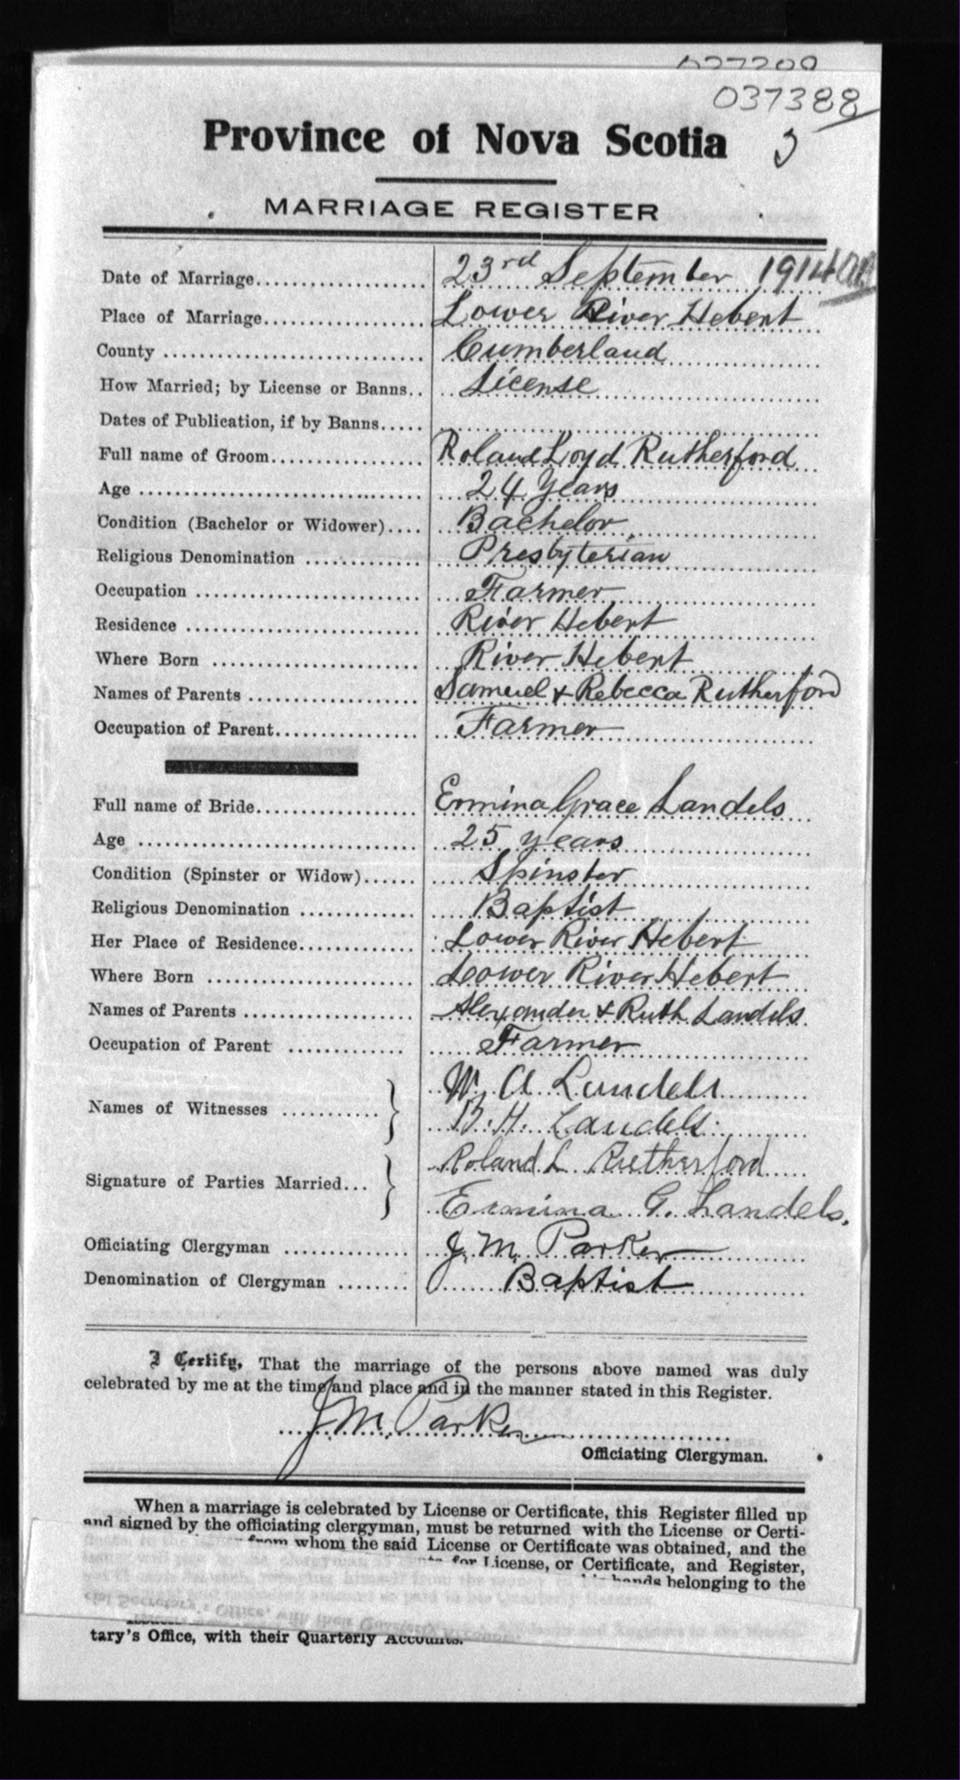 037388
Province of Nova Scotia 3
MARRIAGE REGISTER
Date of Marriage 23rd September 1914
Place of Marriage Lower River Hebert
County Cumberland
How Married; by License or Banns License
Dates of Publication, if by Banns
Full name of Groom Roland Loyd Rutherford
Age 24 Years
Condition (Bachelor or Widower) Bachelor
Religious Denomination Presbyterian
Occupation Farmer
Residence River Hebert
Where Born River Hebert
Names of Parents Samuel & Rebecca Rutherford
Occupation of Parent Farmer
Full name of Bride Ermina Grace Landels
Age 25 years
Condition (Spinster or Widow) Spinster
Religious Denomination Baptist
Her Place of Residence Lower River Hebert
Where Born Lower River Hebert
Names of Parents Alexander & Ruth Landels
Occupation of Parent Farmer
W. A Landels
Names of Witnesses
B. H. Landels
Roland L Rutherford
Signature of Parties Married
Ermina G. Landels.
Officiating Clergyman J. M. Parker
Denomination of Clergyman Baptist
I Certify, That the marriage of the persons above named was duly
celebrated by me at the time and place and in the manner stated in this Register.
J. M. Parker
Officiating Clergyman.
When a marriage is celebrated by License or Certificate, this Register filled up
and signed by the officiating clergyman, must be returned with the License or Certi-
from whom the said License or Certificate was obtained, and the
for License, or Certificate, and Register,
hands belonging to the
tary's Office, with their Quarterly Accounts.